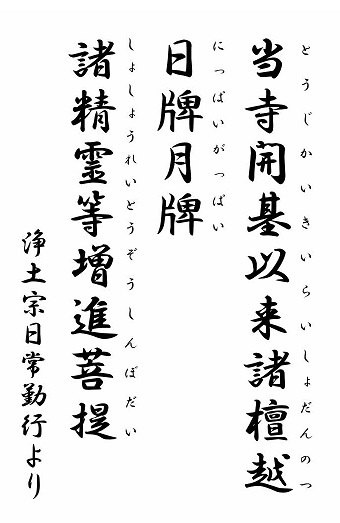 当寺開基以来諸檀越
とうじかいきいらいしょだんのつ
日牌月牌
にっぱいがっぱい
諸精霊等増進菩提
しょしょうれいとうぞうしんぼだい
浄土宗日常勤行より